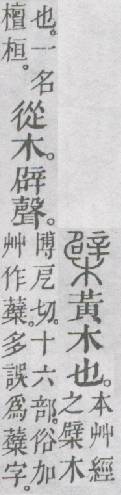 檗黃木也。
本艸經
之檗木
也。一名
檀桓。
從木。辟聲。
博戹切。十六部。俗加
艸作蘗。多誤爲蘗字。